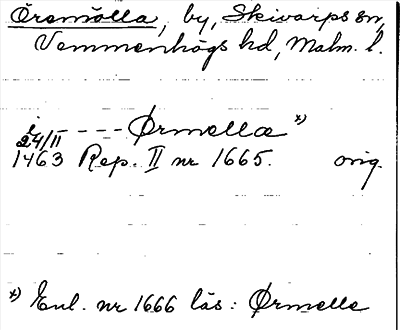 Öremölla, by, Skivarps sn,
Vemmenhögs hd, Malm. l.
i - - - - Ørmellæ x)
24/11
1463 Rep. II nr 1665. orig.
x) Enl. nr 1666 läs: Ørmelle